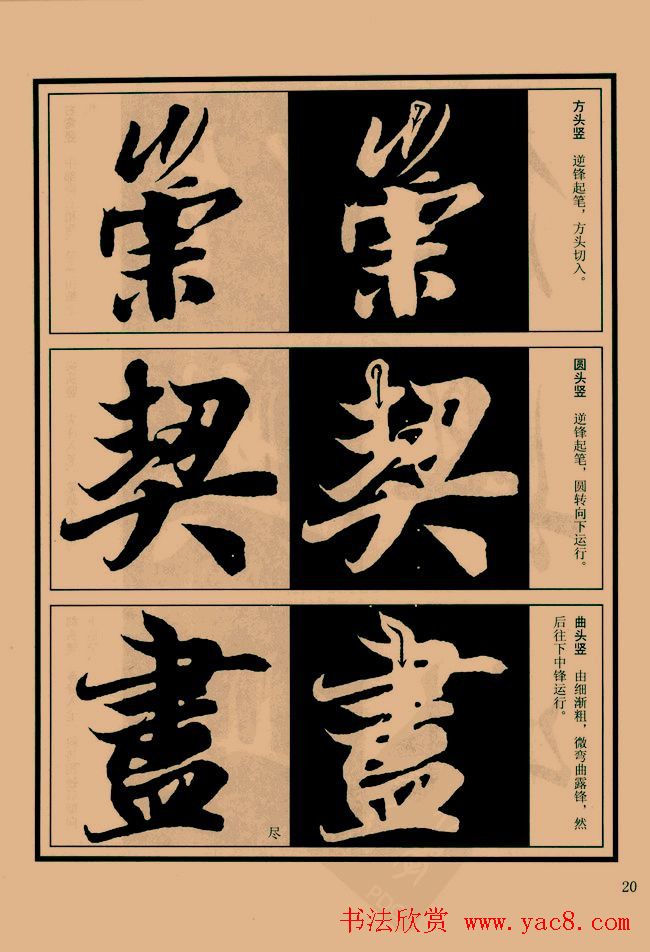 方头竖　逆锋起笔，方头切入。
崇
崇
圆头竖　逆锋起笔，圆转向下运行。
契
契
曲头竖　由细渐粗，微弯曲露锋，然
后往下中锋运行。
盡
盡
尽
20
书法欣赏 www.yac8.com